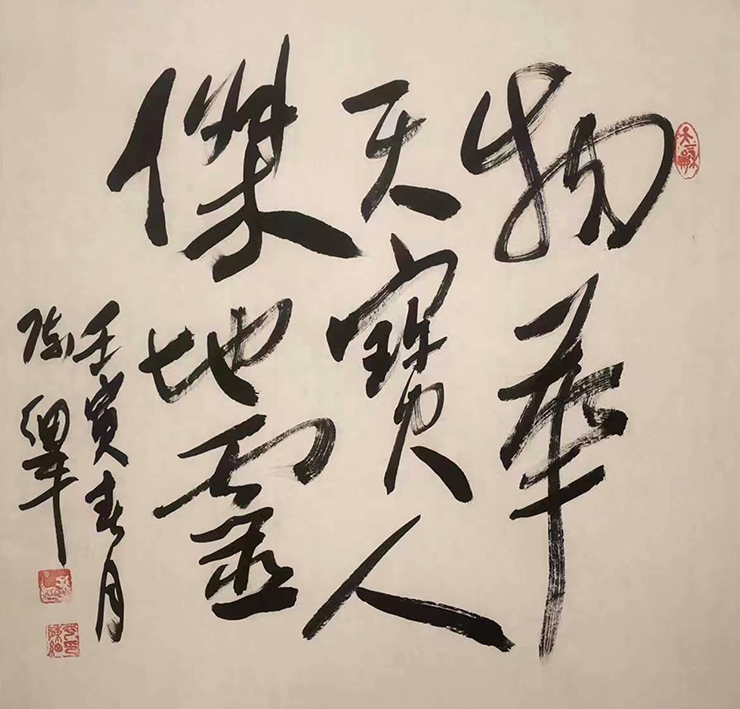 物華
天寶人
傑地靈
壬寅春月
陈細平